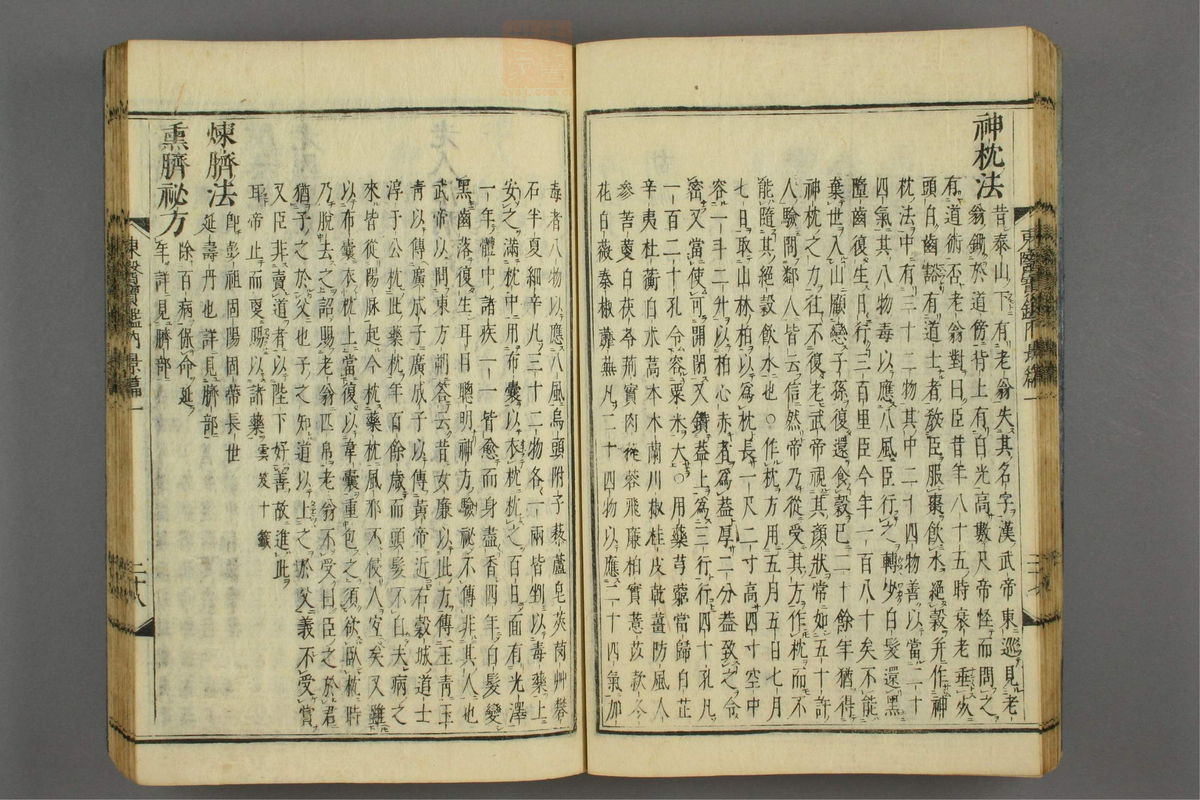 神枕法
昔泰山下有老翁失其名字漢武帝東巡見老
翁鋤於道傍背上有白光高數尺帝怪而問之
有道術否老翁對曰臣昔年八十五時衰老垂死
頭白齒豁有道士者教臣服棗飲水絕穀并作神
枕法中有三十二物其中二十四物善以當二十
四氣其八物毒以應八風臣行之轉少白髮還黑
墮齒復生日行三百里臣今年一百八十矣不能
棄世入山顧戀子孫復還食穀已二十餘年猶得
神枕之力往不復老武帝視其顏狀常如五十許
人驗問鄰人皆云信然帝乃從受其方作枕而不
能隨其絕穀飲水也○作枕方用五月五日七月
七日取山林柏以爲枕長一尺二寸高四寸空中
容一斗二升以柏心赤者爲蓋厚二分蓋致之令
密又當使可開閉又鑽蓋上爲三行行四十孔凡
一百二十孔令容粟米大○用藥芎藭當歸白芷
辛夷杜蘅白朮藁本木蘭川椒桂皮乾薑防風人
參苦蔓白茯苓荊實肉蓯蓉飛廉柏實薏苡款冬
花白薇秦椒蘼蕪凡二十四物以應二十四氣加
東醫寶鑑內景篇一
毒者八物以應八風烏頭附子藜蘆皂莢茵艸礬
石半夏細辛凡三十二物各一兩皆剉以毒藥上
安之滿枕中用布囊以衣枕枕之百日面有光澤
一年體中諸疾一一皆愈而身盡香四年白髮變
黑齒落復生耳目聰明神方驗祕不傳非其人也
武帝以問東方朔答云昔女廉以此方傳玉青玉
青以傳廣成子廣成子以傳黃帝近者穀城道士
淳于公枕此藥枕年百餘歲而頭髮不白夫病之
來皆從陽脉起今枕藥枕風邪不侵人宜矣又雖
以布囊衣枕上當復以韋囊重包之須欲臥枕時
乃脫去之詔賜老翁匹帛老翁不受曰臣之於君
猶子之於父也子之知道以上之於父義不受賞
又臣非賣道者以陛下好善故進此
耳帝止而更賜以諸藥雲笈十籤
煉臍法
卽彭祖固陽固帝長世
延壽丹也詳見臍部
熏臍祕方
除百病保命延
年詳見臍部
東醫寶鑑內景篇一
二十八